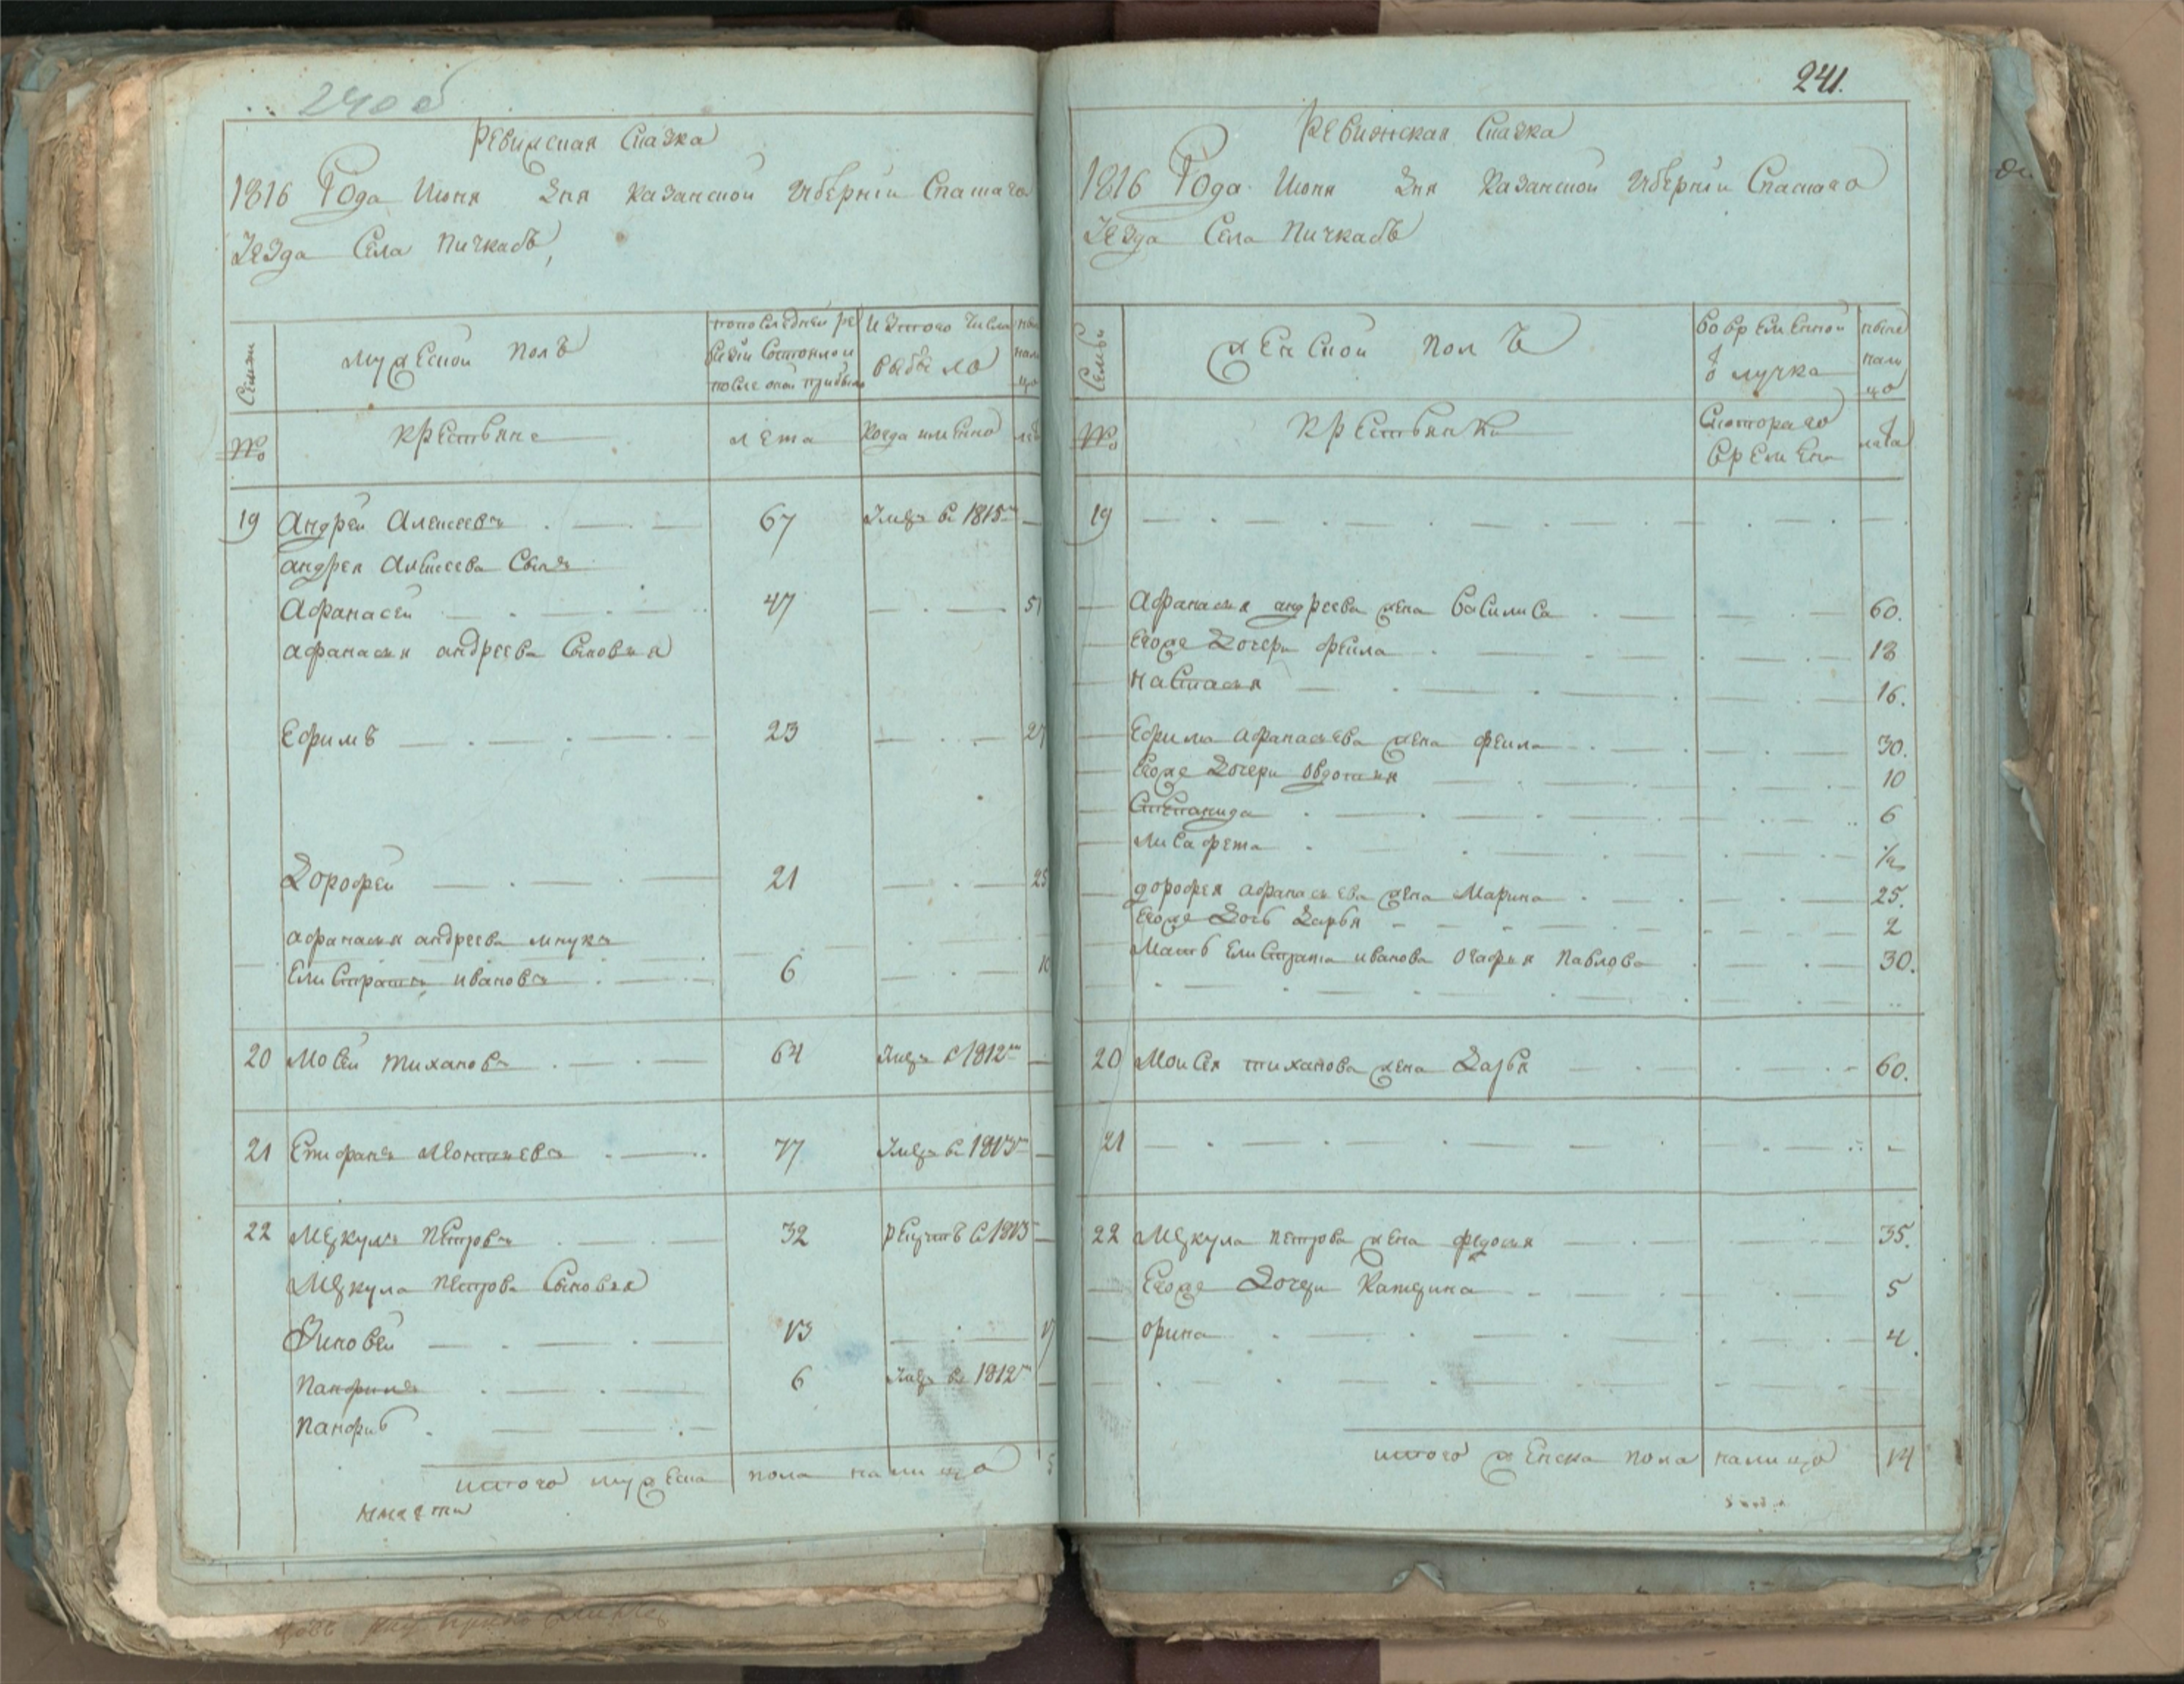 240об
Ревижская Сказка
1816 Года Июня Дня Казанской Губернiи Спаскаго
Уезда Села Пичкасъ,
Семьи
Мужеской полъ
попоследней ре
визiи Состояло и
после оной прибыло
Изтого Числа
выбыло
№
крестьяне
лета
Когда имянно
19 Андрей Алексеевъ 67 Умеръ въ 1815м
андрея Алексеева Сынъ
Афанасей 47 51
афанасья андреева Сыновья
Ефимъ 23 27
Дорофей 21 25
афанасья андреева внукъ
Елистратъ ивановъ 6 10
20 Мосей тихановъ 64 Умеръ в 1812м
21 Епифанъ 77 Умеръ въ 1813м
22 Меркулъ Петровъ 32 рекрутъ в 1813
Меркула Петрова Сыновья
Зиновей 13 17
Панфилъ 6 Умеръ въ 1812м
итого мужеска пола налицо 5
241.
Ревижская Сказка
1816 Года Июня Дня Казанской Губернiи Спаскаго
Уезда Села Пичкасъ
Семьи
женской полъ
Вовременной
отлучка
ныне
нали
цо
№
крестьянки
Скотораго
времени
лета
19
Афанасья андреева жена Василиса 60.
Егоже Дочери фекла 18
настасья 16.
Ефима афанасьева жена фекла 30.
Егоже Дочери овдотья 10
Степанида 6
Лисафета 1/2
дорофея афанасьева жена Марина 25.
Егоже Дочь Дарья 2
Мать Елистрата иванова Агафья Павлова 30.
20 Моисея тиханова жена Дарья 60.
21
22 Меркула петрова жена федосья 35.
Егоже Дочери Катерина 5
орина 4.
итого женска пола налицо 14